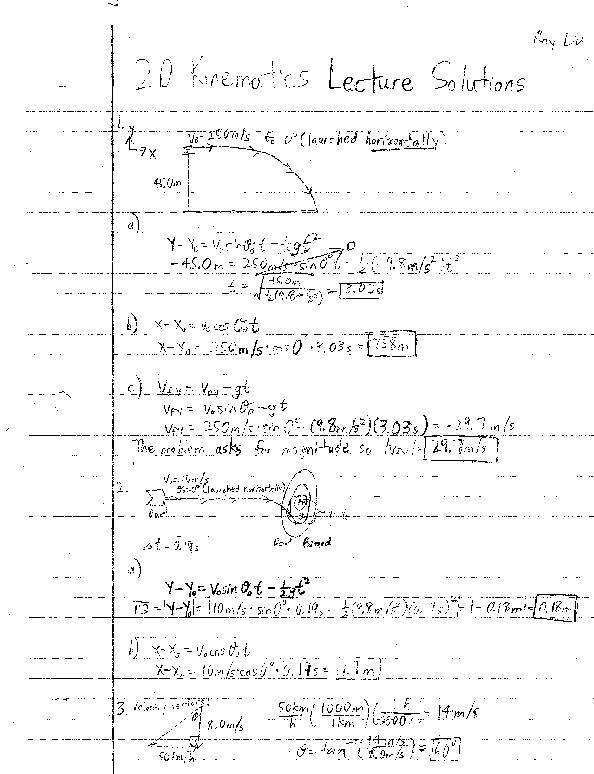 Any Liu
2D Kinematics Lecture Solutions
1. Y
X
V₀ = 250 m/s θ = 0° (launched horizontally)
45.0m
a)
Y-Y₀ = V₀ sinθ₀t - ½gt²
-45.0m = 250m/s · sin0° t - ½(9.8m/s²)t²
0
t = √(45.0m / ½(9.8 m/s²)) = 3.03s
b) X-X₀ = V₀ cosθ₀t
X-X₀ = 250m/s · cos0 · 3.03s = 758m
c) V_FY = V_0Y - gt
V_FY = V₀ sinθ₀ - gt
V_FY = 250m/s · sin0° - (9.8m/s²)(3.03s) = -29.7m/s
The problem asks for magnitude so |V_FY| = 29.7m/s
2. V₀ = 10m/s
θ = 0° (launched horizontally)
Dart
Board
Δt = 0.19s
a)
Y-Y₀ = V₀ sinθ₀t - ½gt²
= |Y-Y₀| = |10m/s · sin0° · 0.19s - ½(9.8m/s²)(0.19s)²| = |-0.18m| = 0.18m
b) X-X₀ = V₀ cosθ₀t
X-X₀ = 10m/s · cos0° · 0.19s = 1.9m
3.
θ
8.0m/s
50km/h
50km/h (1000m/1km)(1h/3600s) = 14m/s
θ = tan⁻¹(14m/s / 8.0m/s) = 60°